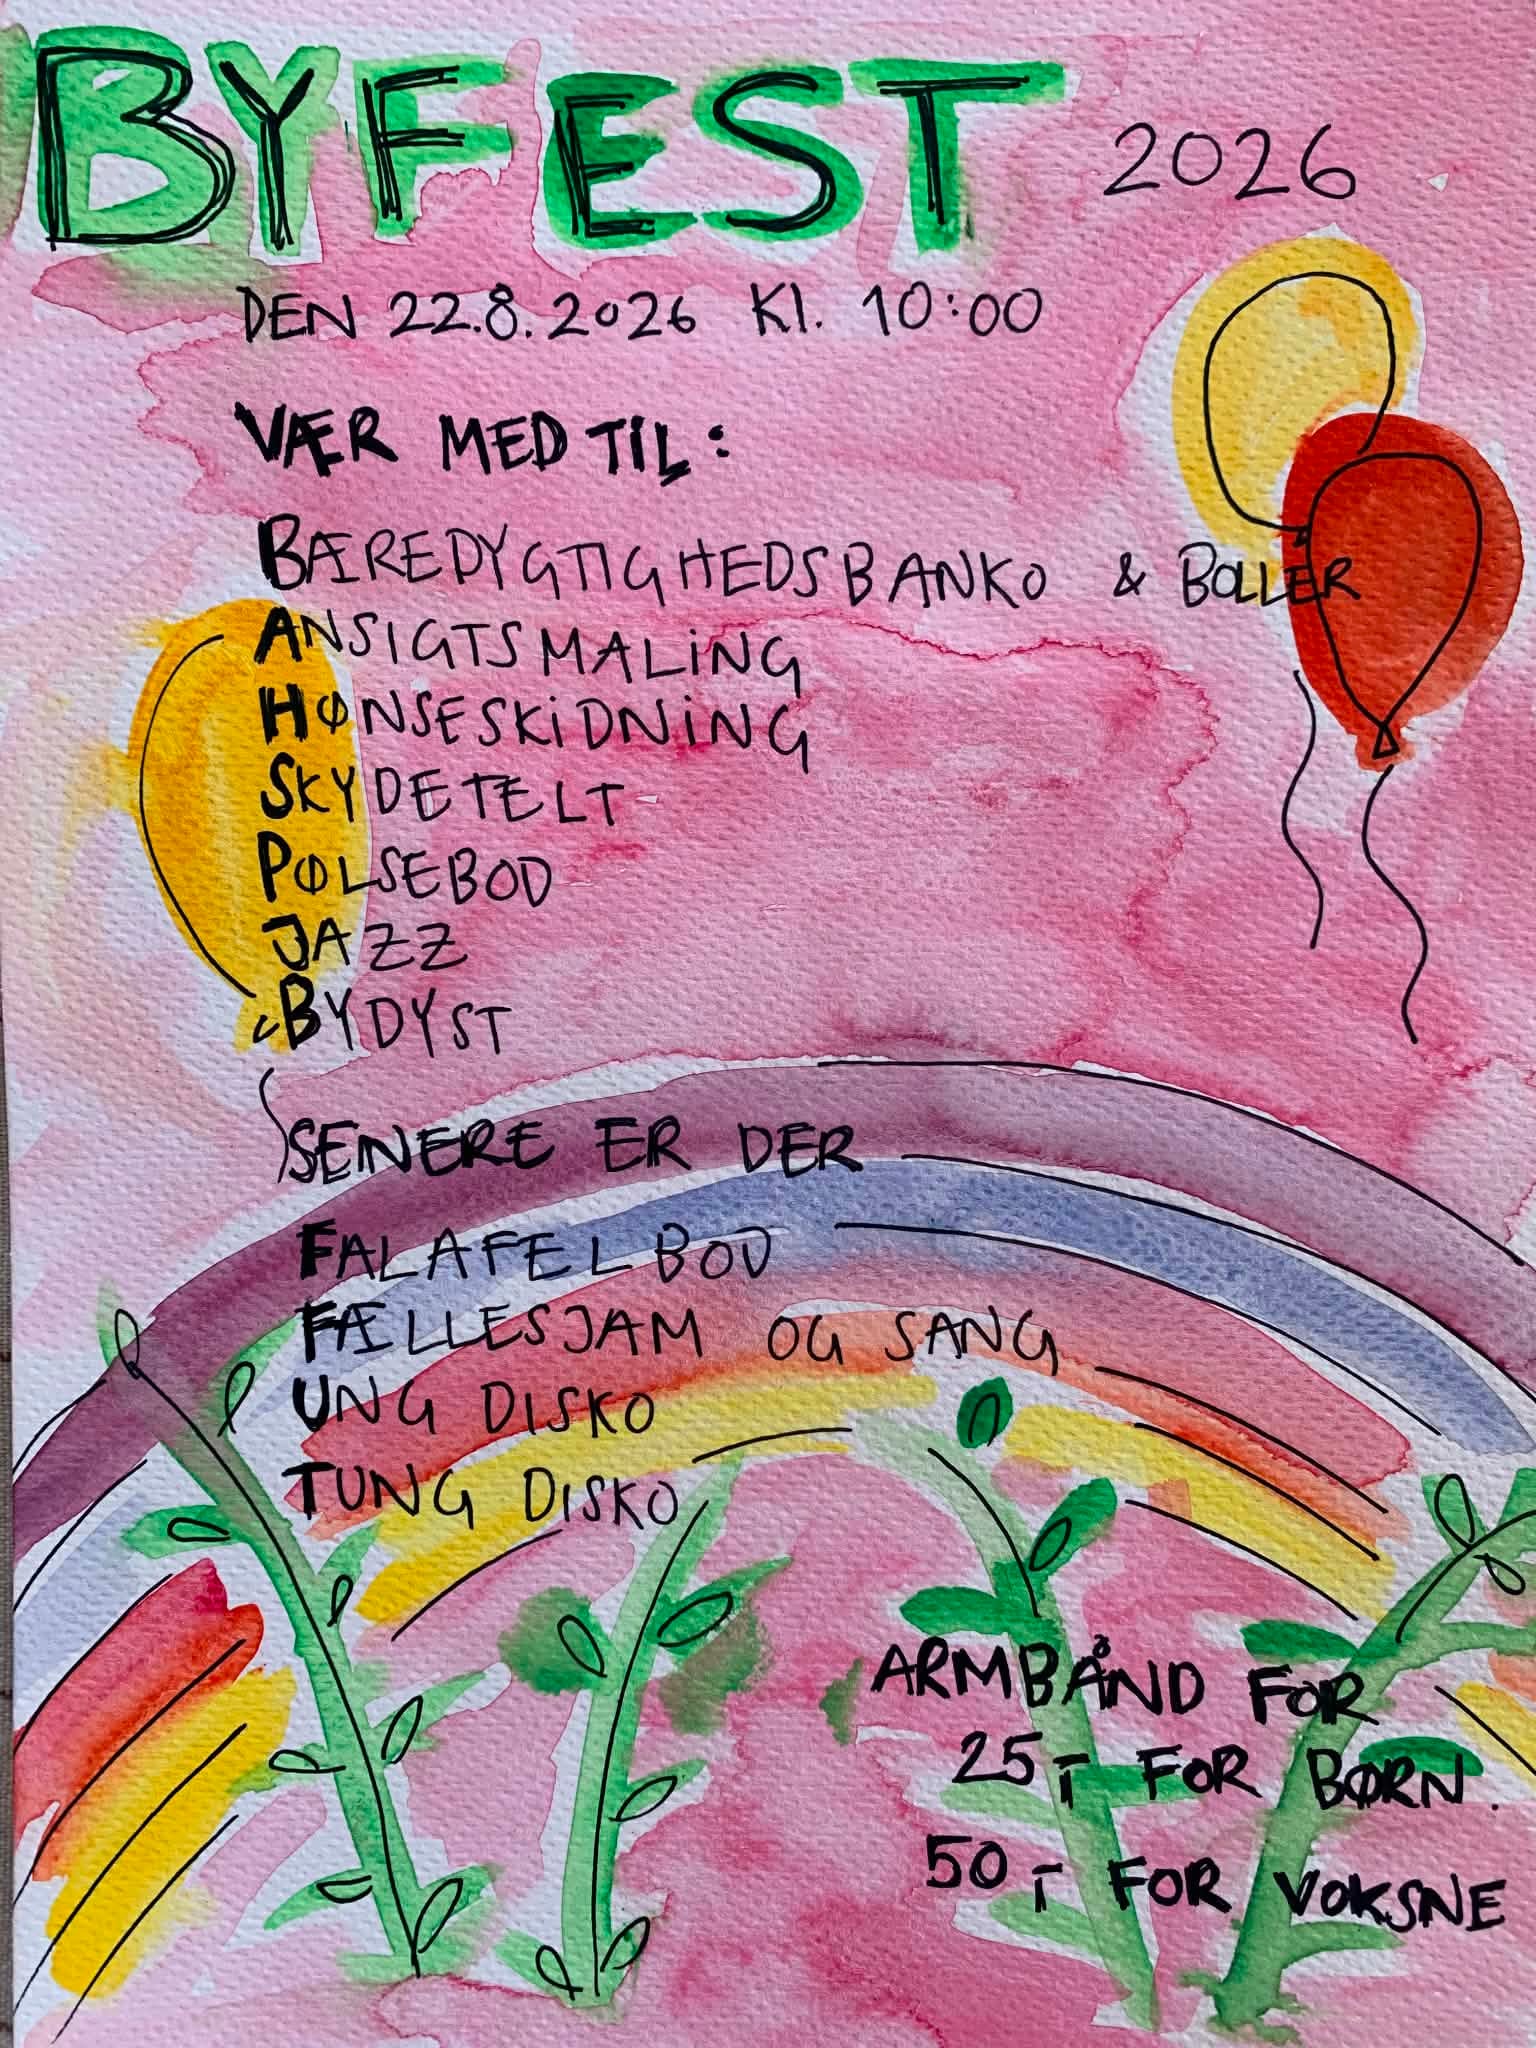 BYFEST 2026
DEN 22.8.2026 Kl. 10:00
VÆR MED TIL:
BÆREDYGTIGHEDSBANKO & BOLLER
ANSIGTSMALING
HØNSESKIDNING
SKYDETELT
PØLSEBOD
JAZZ
BYDYST
SENERE ER DER
FALAFELBOD
FÆLLESJAM OG SANG
UNG DISKO
TUNG DISKO
ARMBÅND FOR
25,- FOR BØRN.
50,- FOR VOKSNE